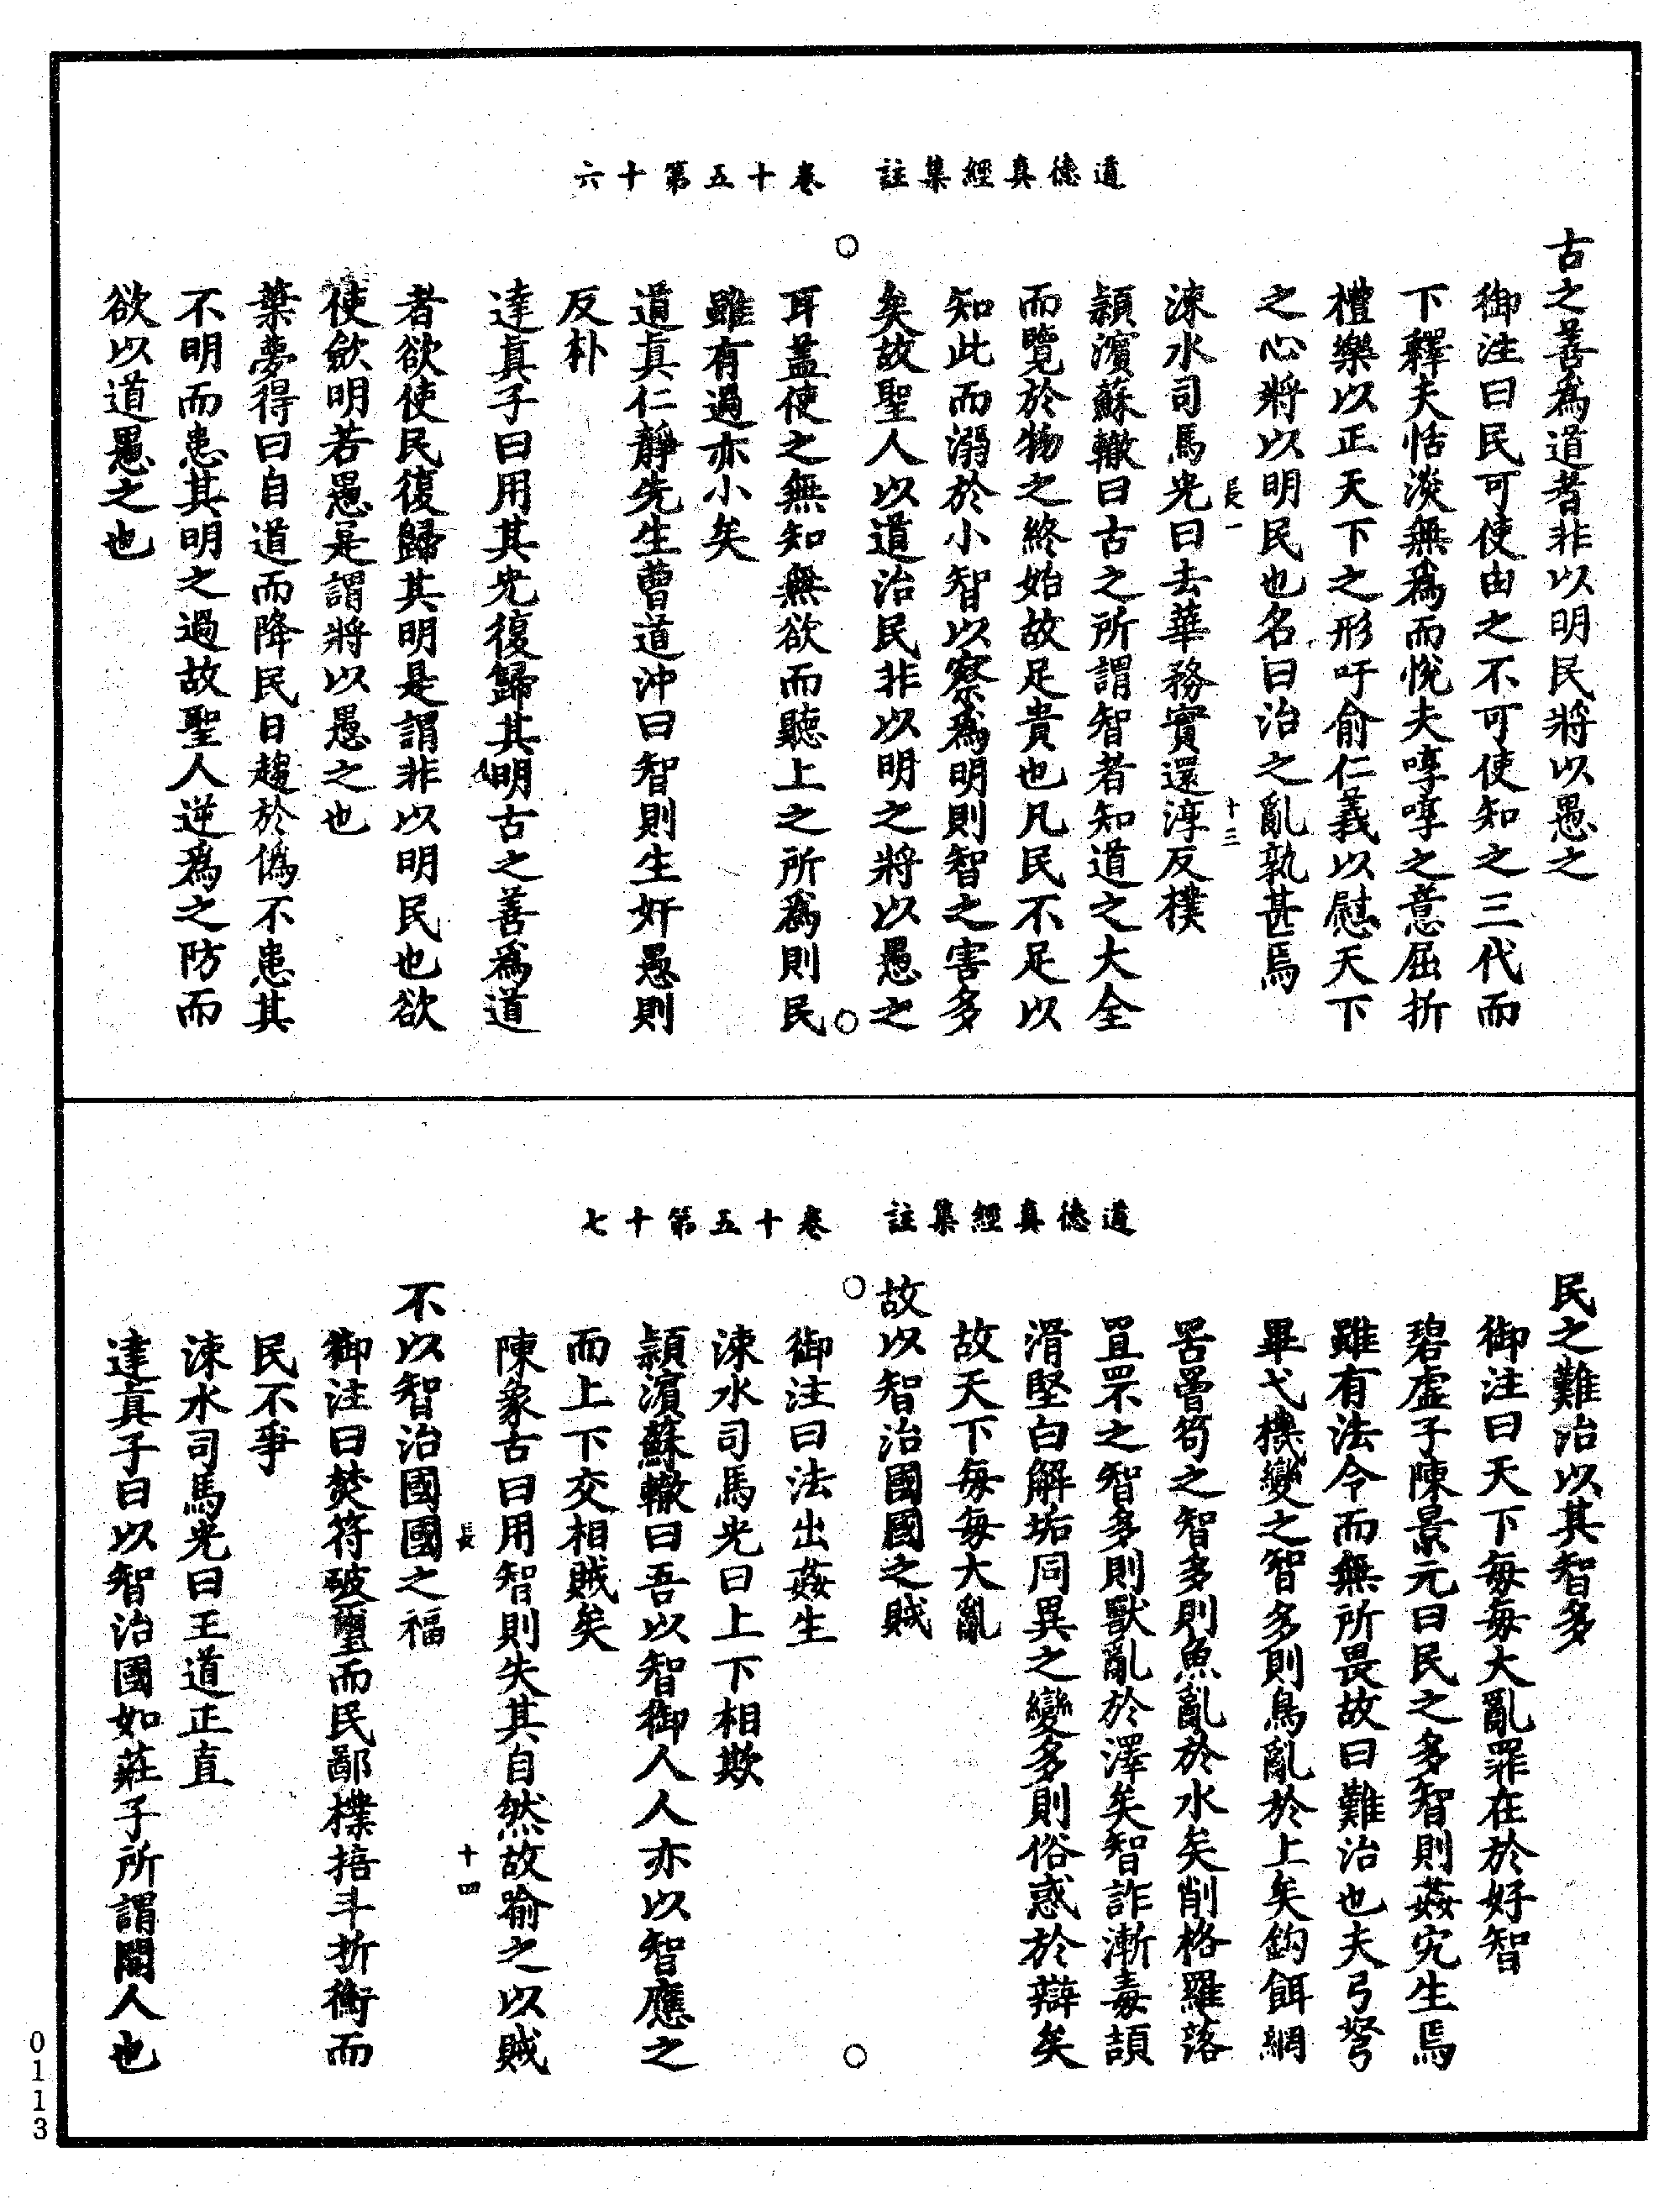 道德真經集註　卷十五第十六
古之善爲道者非以明民將以愚之
御注曰民可使由之不可使知之三代而
下釋夫恬淡無爲而悅夫啍啍之意屈折
禮樂以正天下之形吁俞仁義以慰天下
之心將以明民也名曰治之亂孰甚焉
長一　十三
涑水司馬光曰去華務實還淳反樸
頴濱蘇轍曰古之所謂智者知道之大全
而覽於物之終始故足貴也凡民不足以
知此而溺於小智以察爲明則智之害多
矣故聖人以道治民非以明之將以愚之
耳蓋使之無知無欲而聽上之所爲則民
雖有過亦小矣
道真仁靜先生曹道沖曰智則生姧愚則
反朴
達真子曰用其光復歸其明古之善爲道
者欲使民復歸其明是謂非以明民也欲
使斂明若愚是謂將以愚之也
葉夢得曰自道而降民日趨於僞不患其
不明而患其明之過故聖人逆爲之防而
欲以道愚之也
道德真經集註　卷十五第十七
民之難治以其智多
御注曰天下每每大亂罪在於好智
碧虛子陳景元曰民之多智則姦宄生焉
雖有法令而無所畏故曰難治也夫弓弩
畢弋機變之智多則鳥亂於上矣鈎餌網
罟罾笱之智多則魚亂於水矣削格羅落
罝罘之智多則獸亂於澤矣智詐漸毒頡
滑堅白解垢同異之變多則俗惑於辯矣
故天下每每大亂
故以智治國國之賊
御注曰法出姦生
涑水司馬光曰上下相欺
頴濱蘇轍曰吾以智御人人亦以智應之
而上下交相賊矣
陳象古曰用智則失其自然故喻之以賊
長　十四
不以智治國國之福
御注曰焚符破璽而民鄙樸掊斗折衡而
民不爭
涑水司馬光曰王道正直
達真子曰以智治國如莊子所謂開人也
0113